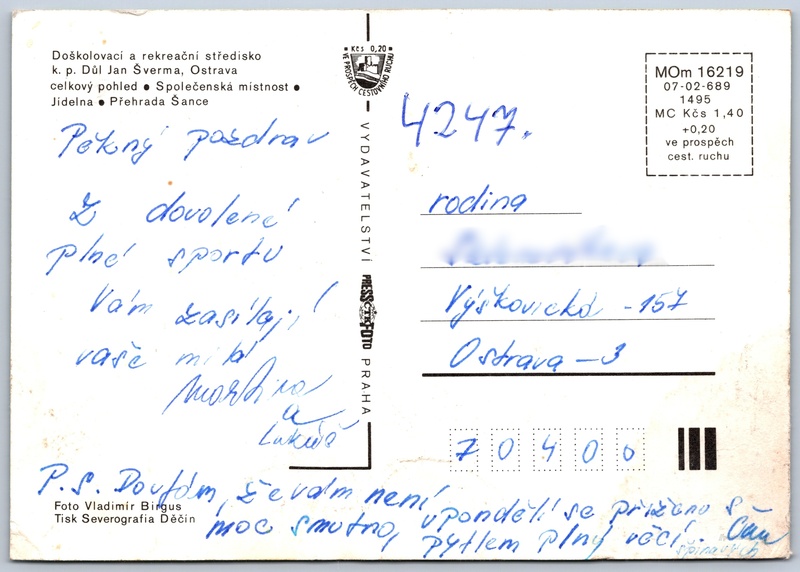 Doškolovací a rekreační středisko
k. p. Důl Jan Šverma, Ostrava
celkový pohled ● Společenská místnost ●
Jídelna ● Přehrada Šance
Kčs 0,20
VE PROSPĚCH CESTOVNÍHO RUCHU
MOm 16219
07-02-689
1495
MC Kčs 1,40
+0,20
ve prospěch
cest. ruchu
4247.
Pěkný pozdrav
z dovolené
plné sportu
Vám zasílají
vaše milá
Martina
a
Lukáš
VYDAVATELSTVÍ PRESSFOTO PRAHA
ČTK
rodina
Výškovická - 157
Ostrava - 3
70400
P.S. Doufám, že vám není
moc smutno, v pondělí se přiženu s
pytlem plný věcí. Čau
špinavých
Foto Vladimír Birgus
Tisk Severografia Děčín